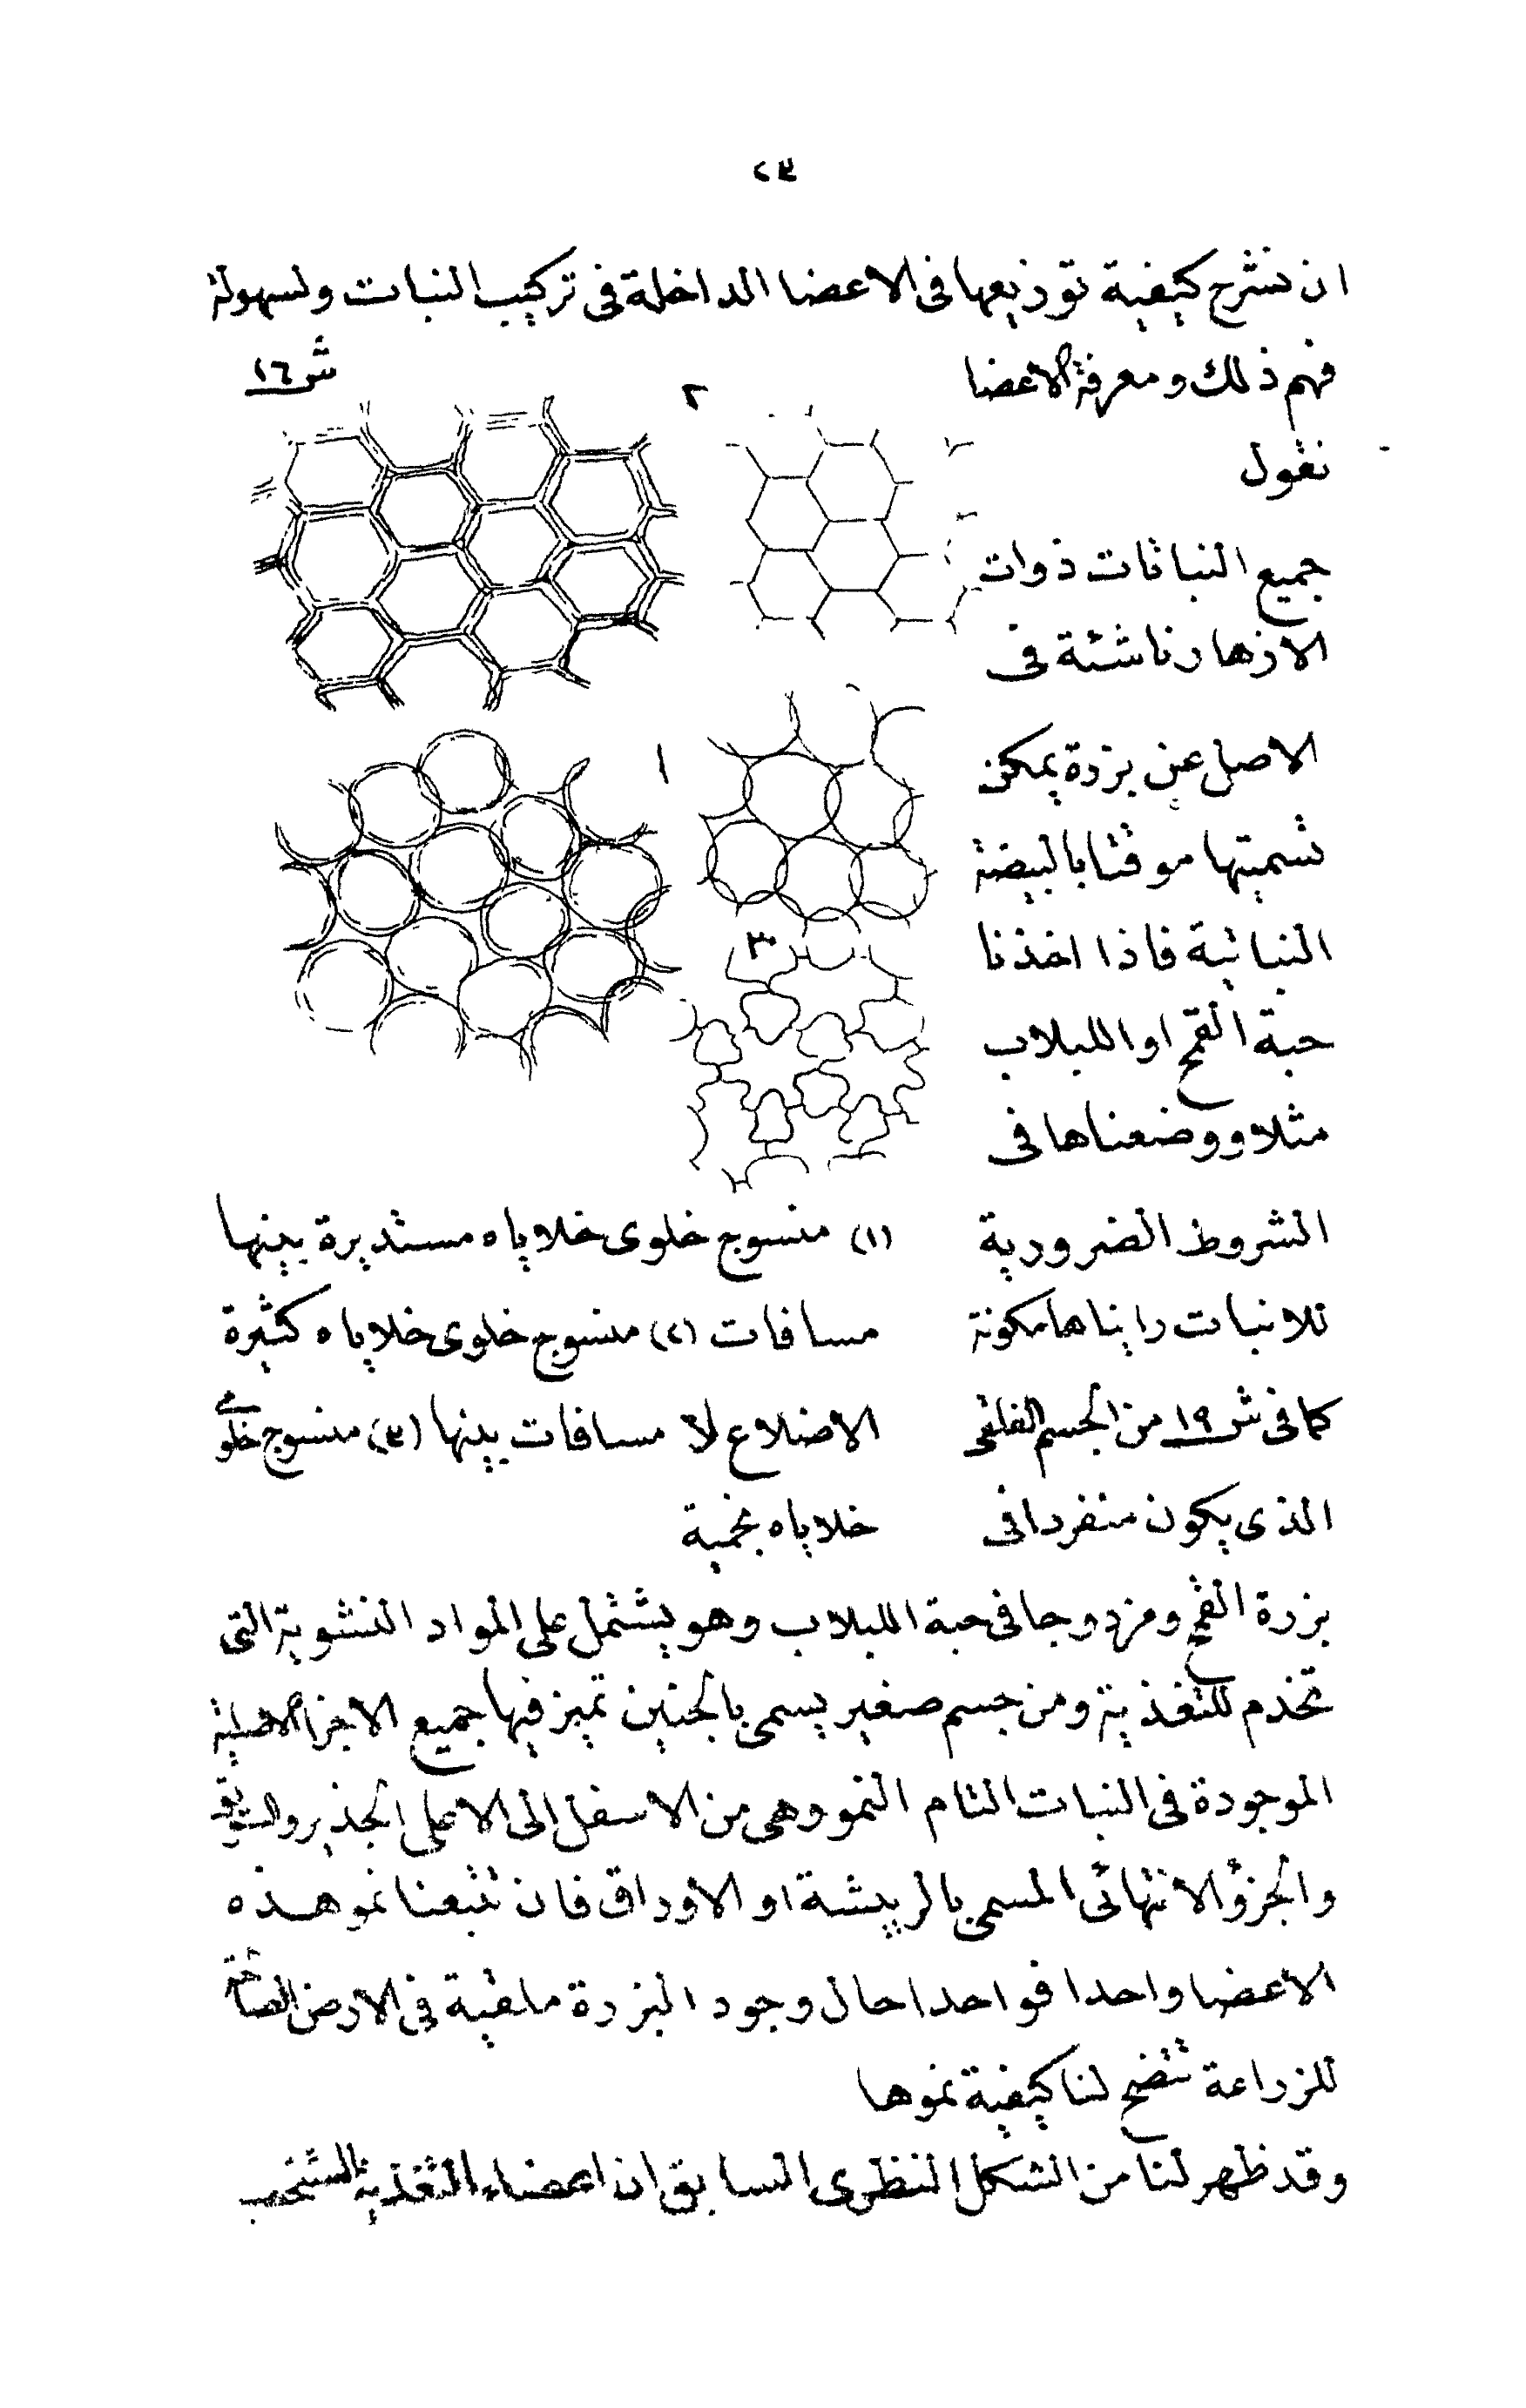 ٢٣
ان نشرح كيفية توزيعها فى الاعضا الداخلة فى تركيب النبات ولسهولة
فهم ذلك ومعرفة الاعضا
نقول
جميع النباتات ذوات
الازهار ناشئة فى
الاصل عن بزرة يمكن
تسميتها موقتا بالبيضة
النباتية فاذا اخذنا
حبة القمح او اللبلاب
مثلا ووضعناها فى
الشروط الضرورية
للانبات رايناها مكونة
كما فى ش ١٩ من الجسم الفلقى
الذى يكون منفردا فى
ش ١٦
٢
١
٣
(١) منسوج خلوى خلاياه مستديرة بينها
مسافات (٢) منسوج خلوى خلاياه كثيرة
الاضلاع لا مسافات بينها (٣) منسوج خلوى
خلاياه نجمية
بزرة القمح ومزدوجا فى حبة اللبلاب وهو يشتمل على المواد النشوية التى
تخدم للتغذية ومن جسم صغير يسمى بالجنين تميز فيها جميع الاجزا الاصلية
الموجودة فى النبات التام النمو وهى من الاسفل الى الاعلى الجذير والسويق
والجزؤ الانتهائى المسمى بالريشة او الاوراق فان تتبعنا نمو هذه
الاعضا واحدا فواحدا حال وجود البزرة ملقية فى الارض الصالحة
للزراعة تتضح لنا كيفية نموها
وقد ظهر لنا من الشكل النظرى السابق ان اعضاء التغذية